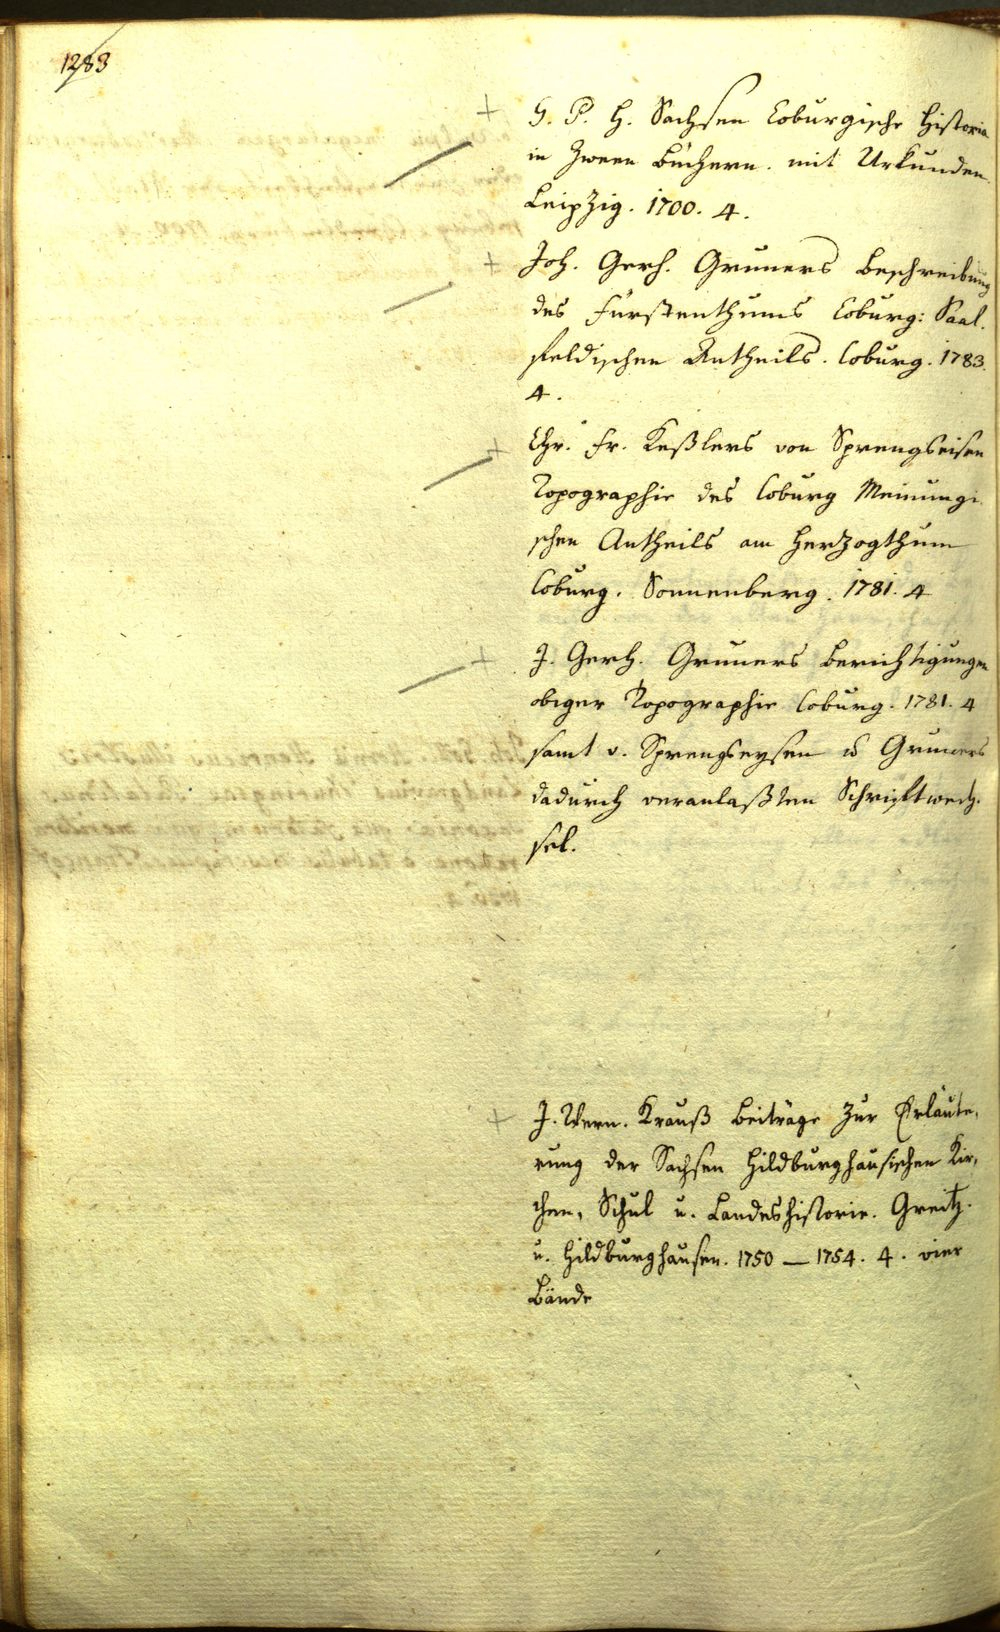 1283
G. P. H. Sachsen Coburgische Historia
in Zween Büchern. mit Urkunden
Leipzig. 1700. 4.
Joh. Gerh. Gruners Beschreibung
des Fürstenthums Coburg: Saal-
feldischen Antheils. Coburg. 1783.
4.
Chr. Fr. Keßlers von Sprengseisen
Topographie des Coburg Meinungi-
schen Antheils am Herzogthum
Coburg. Sonnenberg. 1781. 4
J. Gerh. Gruners Berichtigungen
obiger Topographie Coburg. 1781. 4
samt v. Sprengseysen u Gruners
dadurch veranlaßten Schriftwech-
sel.
J. Wern. Krauß Beiträge zur Erläute-
rung der Sachsen Hildburghausischen Kir-
chen, Schul u. Landeshistorie. Greitz.
u. Hildburghausen. 1750 — 1754. 4. vier
Bände